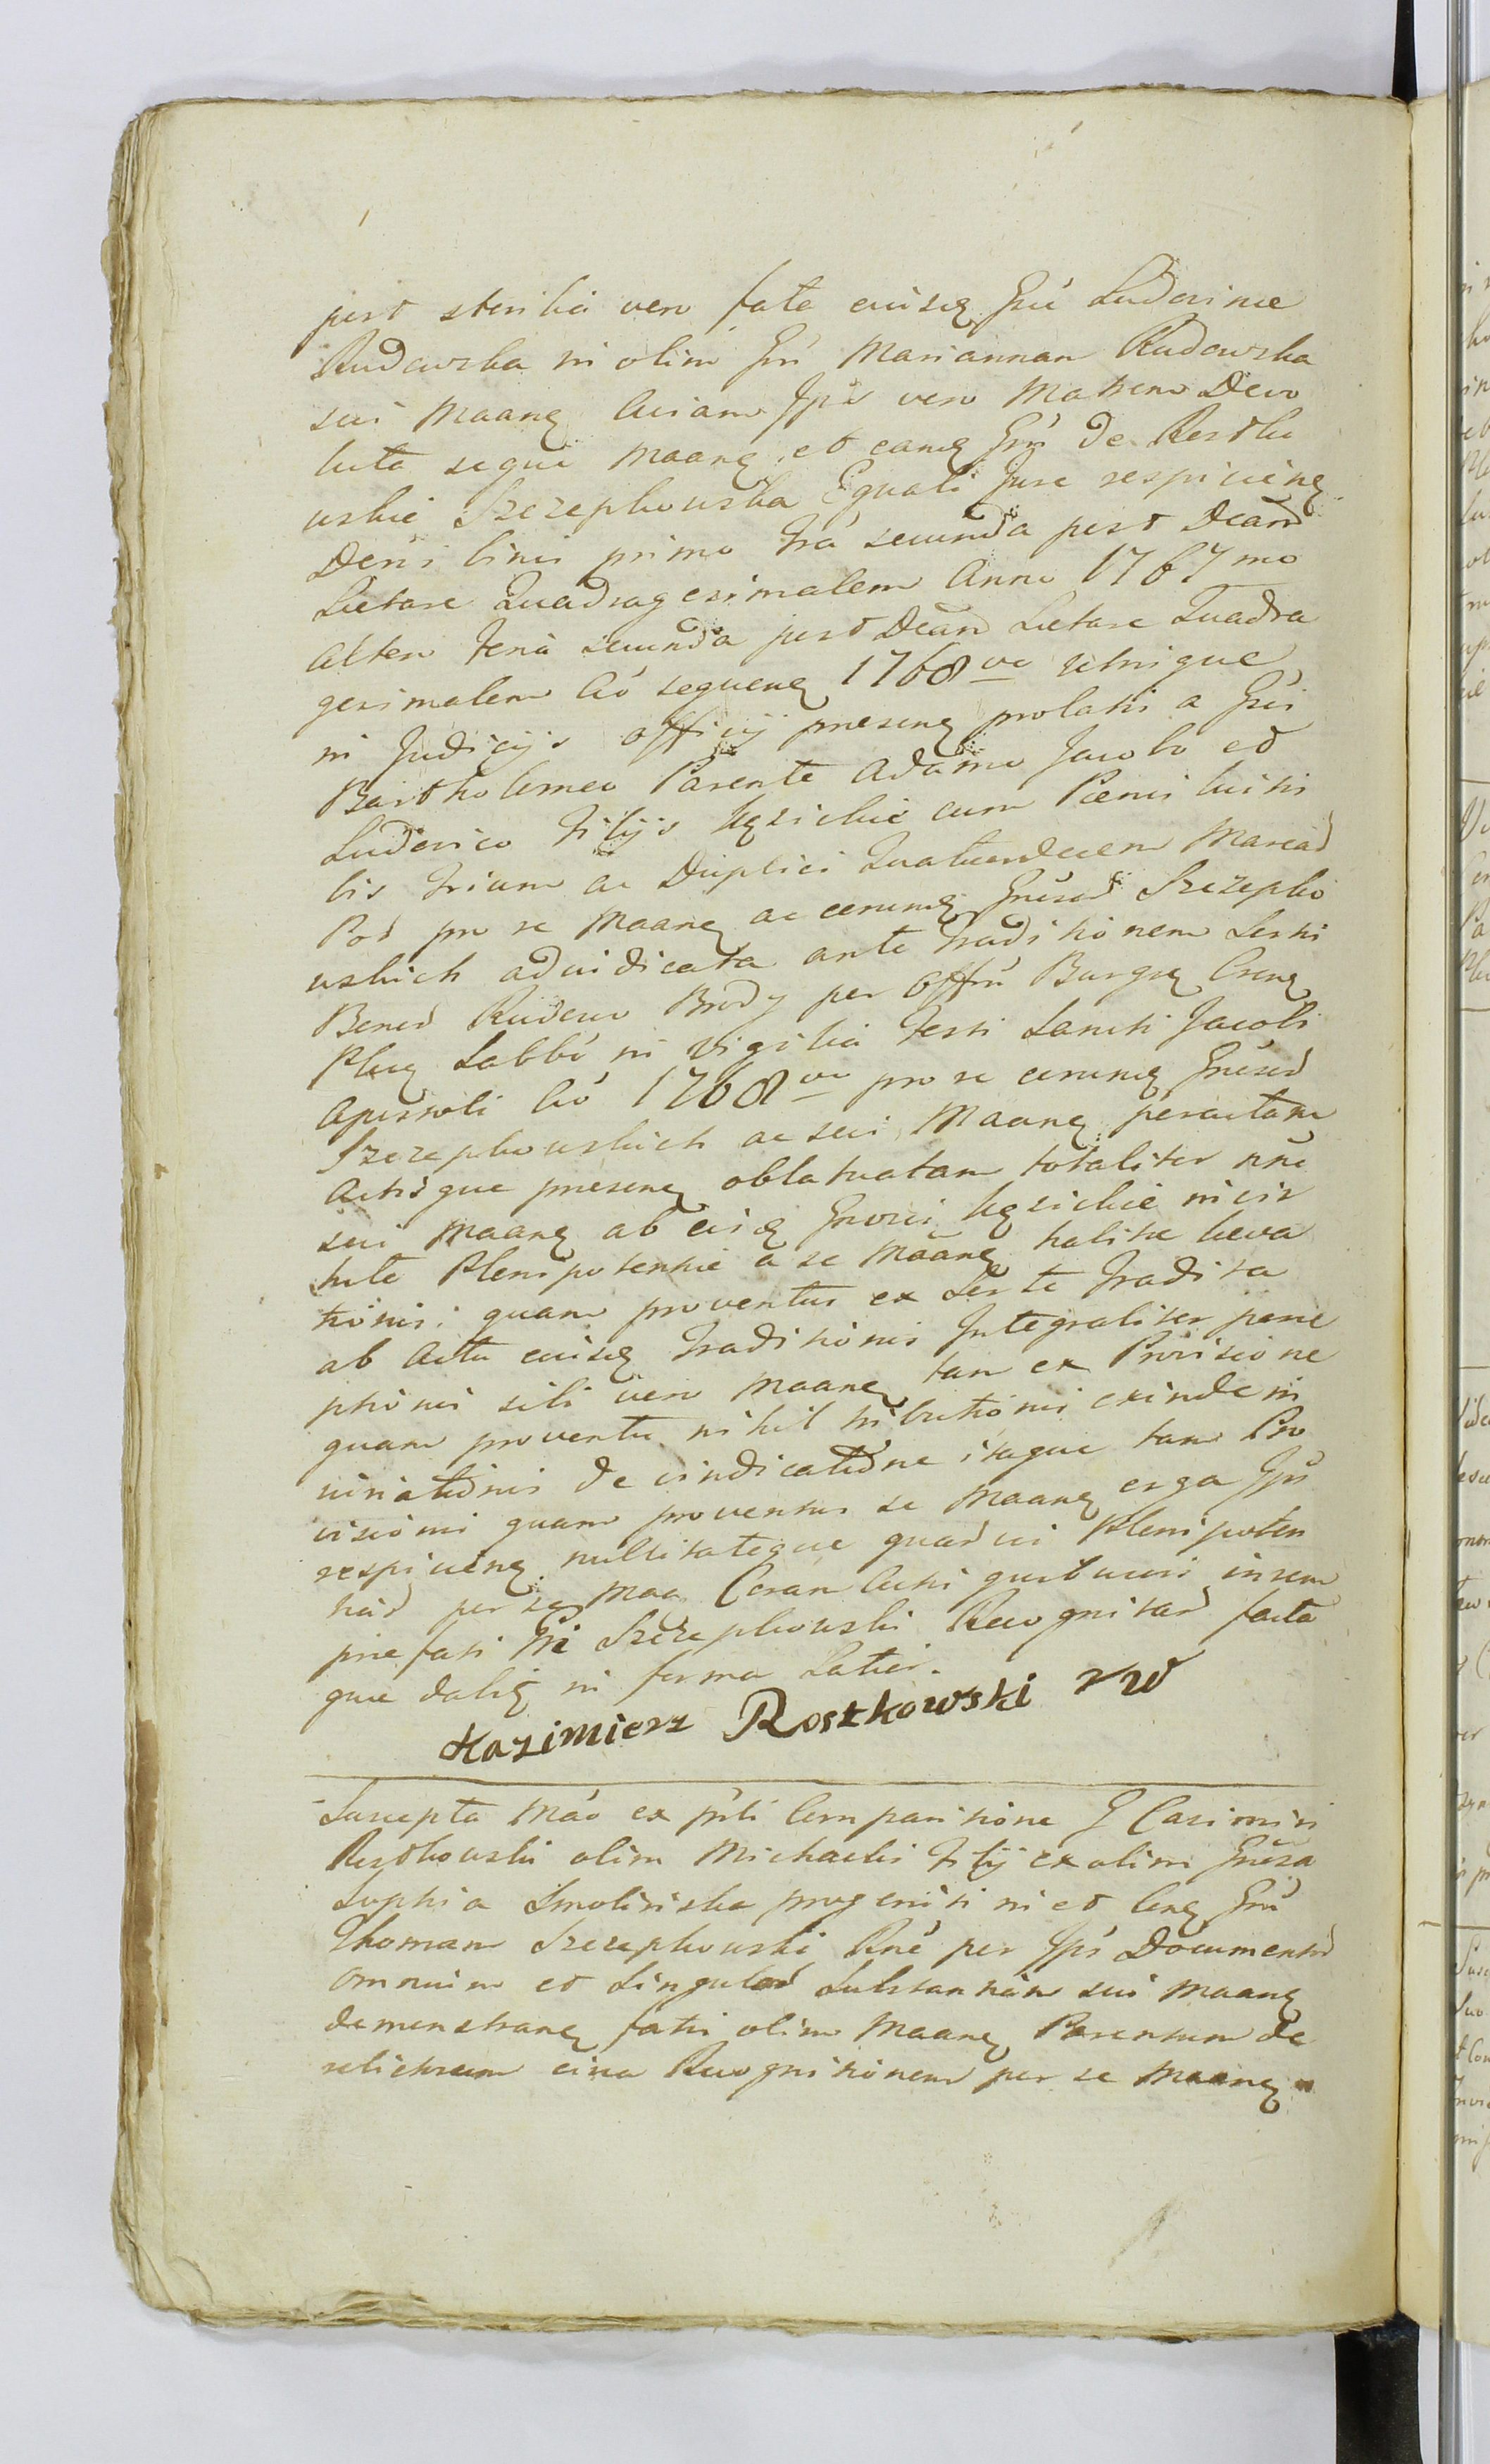 post sterilia vero fata eiusq Gn̄e Ludovicae
Rudowska in olim Gn̄ Mariannam Rudowska
sui Maanq Aviam Jps̄ vero Matrem Devo
luta seque Maanq et eamq Gn̄ de Rostko
wskie Szczepkowska Equali Jure respicienq
Decr̄i binis primo Fr̄a secunda post Dcam̄
Lætare Quadragesimalem Anno 1767mo
altero Feria secunda post Dcam̄ Lætare Quadra
gesimalem Aō sequenq 1768vo utrisque
in Judicijs officij præsenq prolatis a Gn̄si
Bartholomeo Parente Adamo Jacobo et
Ludovico Filijs Kęsickie cum Pœnis luitis
bis trium ac Duplici Quatuordecem Marcar̄
Pol pro se Maanq ac eorumq Gn̄sor̄ Szczepko
wskich adiudicata ante traditionem Sorti
Bonor̄ Rudowo Brody per Offm̄ Burgq Crenq
Plcq Sabbō in Vigilia Festi Sancti Jacobi
Apostoli Aō 1768vo pro se eorumq Gn̄sor̄
Szczepkowskich ac sui Maanq peractam
Actisque præsenq oblatuatam totaliter nn̄c
sui Maanq ab eisq Gnorsi Kęsickie in vir
tute Plenipotentiæ a se Maanq talitæ leva
tionis: quam proventus ex Sorte Tradita
ab Actu eiusq Traditionis Integraliter perce
ptionis sibi vero Maanq tam ex Provisione
quam proventu nihil tributionis exinde in
viniationis de vindicatione itaque tam Pro
visionis quam proventus se Maanq erga Jps̄
respicienq nullitateque quarvis Plenipoten
tiar̄ per se Maa Coram Actis quibusvis in rem
præfati M̄i Szczepkowski Recognitar̄ facta
que dalq in forma Latiori.
Kazimierz Rostkowski rw
Suscepta Maō ex pr̄ti Comparitione G Casimiri
Rostkowski olim Michaelis Filij ex olim Gn̄sa
Sophia Smolińska progeniti in et Conq Gn̄
Thomam Szczepkowski Rn̄e per Jps̄ Documentor̄
omnium et Singulor̄ Substantiam sui Maanq
demonstranq fatis olim Maanq Parentum de
relictorum circa Recognitionem per se Maanq